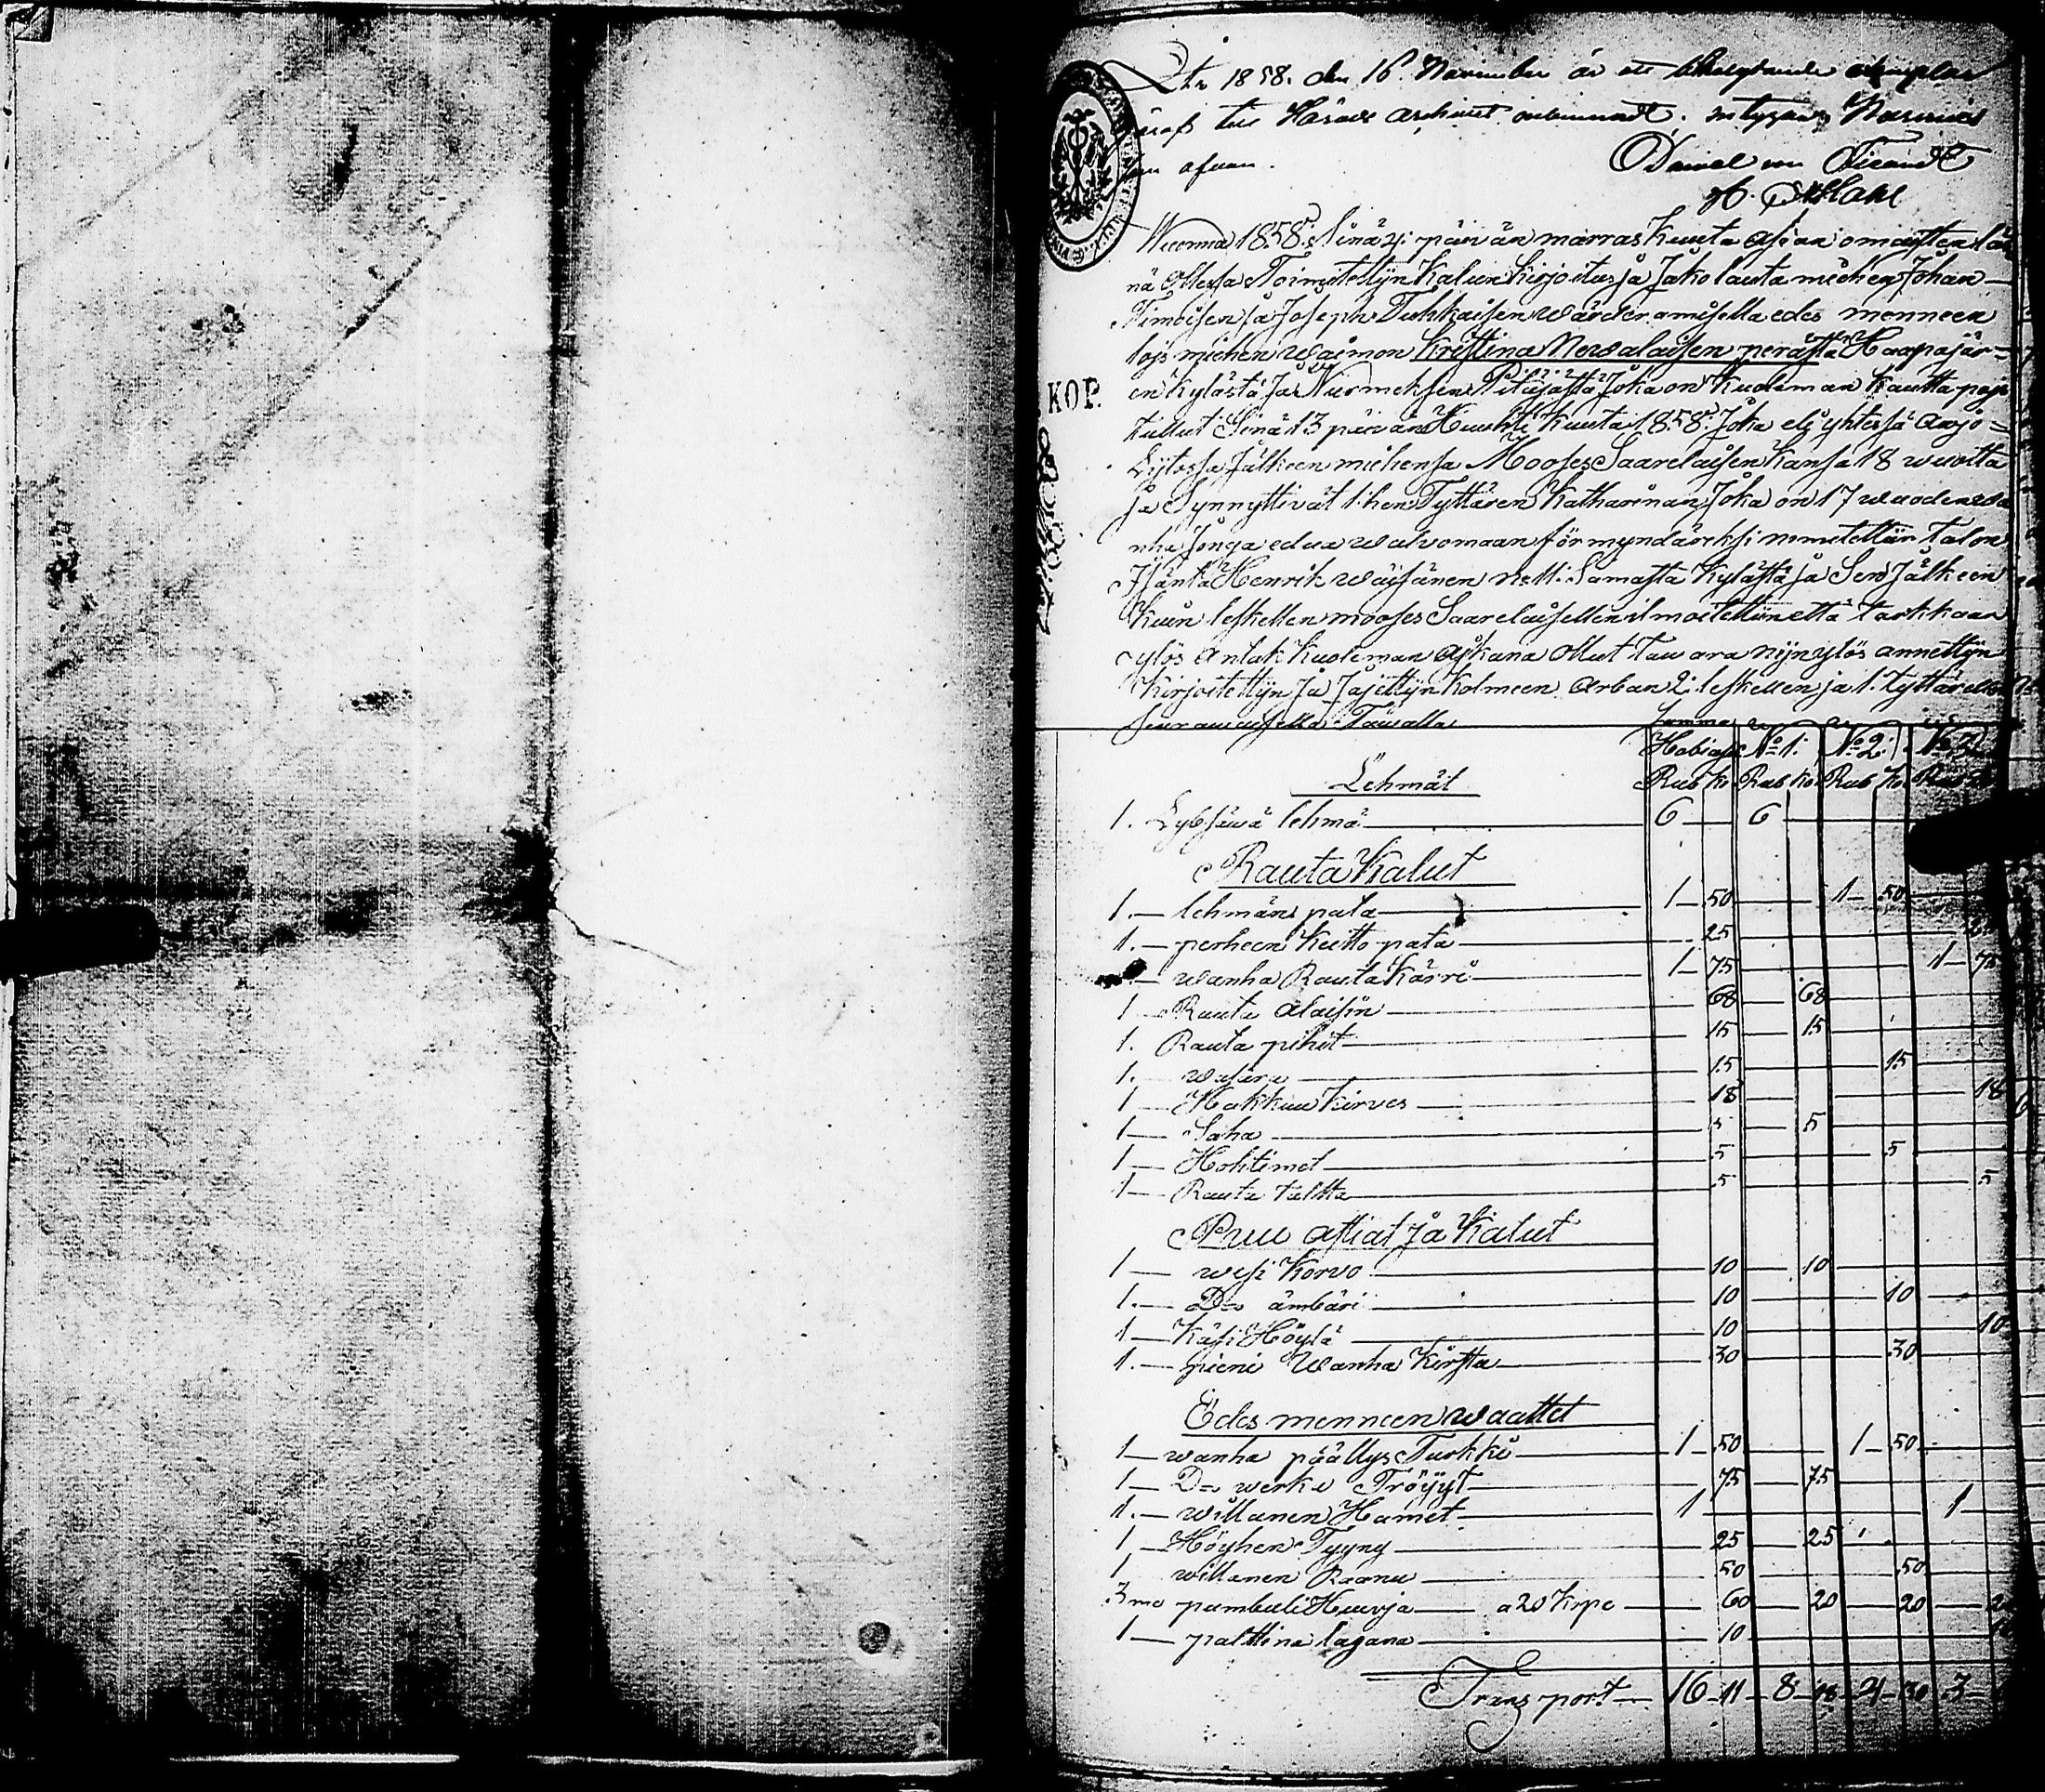 År 1858. den 16. November är ett exemplar
till Härads archivet inlemnadt. intygar Nurmis
som ofvan. Daniel von
H.
KOP.
Wuonna 1858. Sinä 4: päivän marras Kuuta asian omaisten läs
nä ollessa Toimitettijn Kalun Kirjoitus ja Jako lauta miehen Johan
Timoisen ja Joseph Tuhkaisen wärderamisella edes menneen
lojs miehen waimon Kristina Newalaisen perästä Haapajär=
en kylästä Ja Nurmeksen Pitäjästä Joka on Kuoleman kautta pojs
tullut Sinä 13 päivänä Huuhti kuuta 1858. Joka eli yhtessä awjo=
Lijtossa Jälkeen miehensä Mooses Saarelaisen kansa 18 wuotta
ja Synnyttivät 1:hen Tyttären Katharinan, Joka on 17 wuoden wa
nha Jonga edua walvomaan förmyndäreksi nimitettiin talon
Isäntä Henrik wäysänen No 11. Samasta Kylästä ja Sen Jälkeen
Kuin leskellen mooses Saarelaisellen ilmoitettiin että tarkkaan
ylös antak Kuoleman aikana ollut tawara nijn ylös annettijn
Kirjoitettijn Ja Jajettijn Kolmeen arban 2: leskellen ja 1. tyttärellen
seurawaisella Tawalla
Summa
Hobiassa No 1: No 2: No 3
Lehmät Rub Ko Rub Ko Rub Ko Rub Ko
1. Lybsäwä lehmä 6 6
Rauta Kalut
1. lehmän pata 1 50 1 50
1. perheen Keitto pata 25 25
wanha Rauta Kärri 1 75 1 75
1 Rauta alaisin 68 68
1. Rauta pihit 15 15
1. wasara 15 15
1 Hakkuu kirves 18 18
1 Saha 5 5
1 Hohtimet 5 5
1 Rauta taltta 5 5
Puu astiat ja Kalut
1 wesi Korvo 10 10
1. Do ämbäri 10 10
1 Käsi Höylä 10 10
1. pieni Wanha Kirsta 30 30
Edes menneen waattet
1 wanha päällys Turkki 1 50 1 50
1 Do werka Tröyyt 75 75
1. willanen Hamet 1 1
1 Höyhen Tyyny 25 25
1 willanen Raanu 50 50
3 mo pumbuli Huivja a 20 Kope 60 20 20 20
1 palttina lagana 10 10
Transport 16 11 8 18 4 30 3